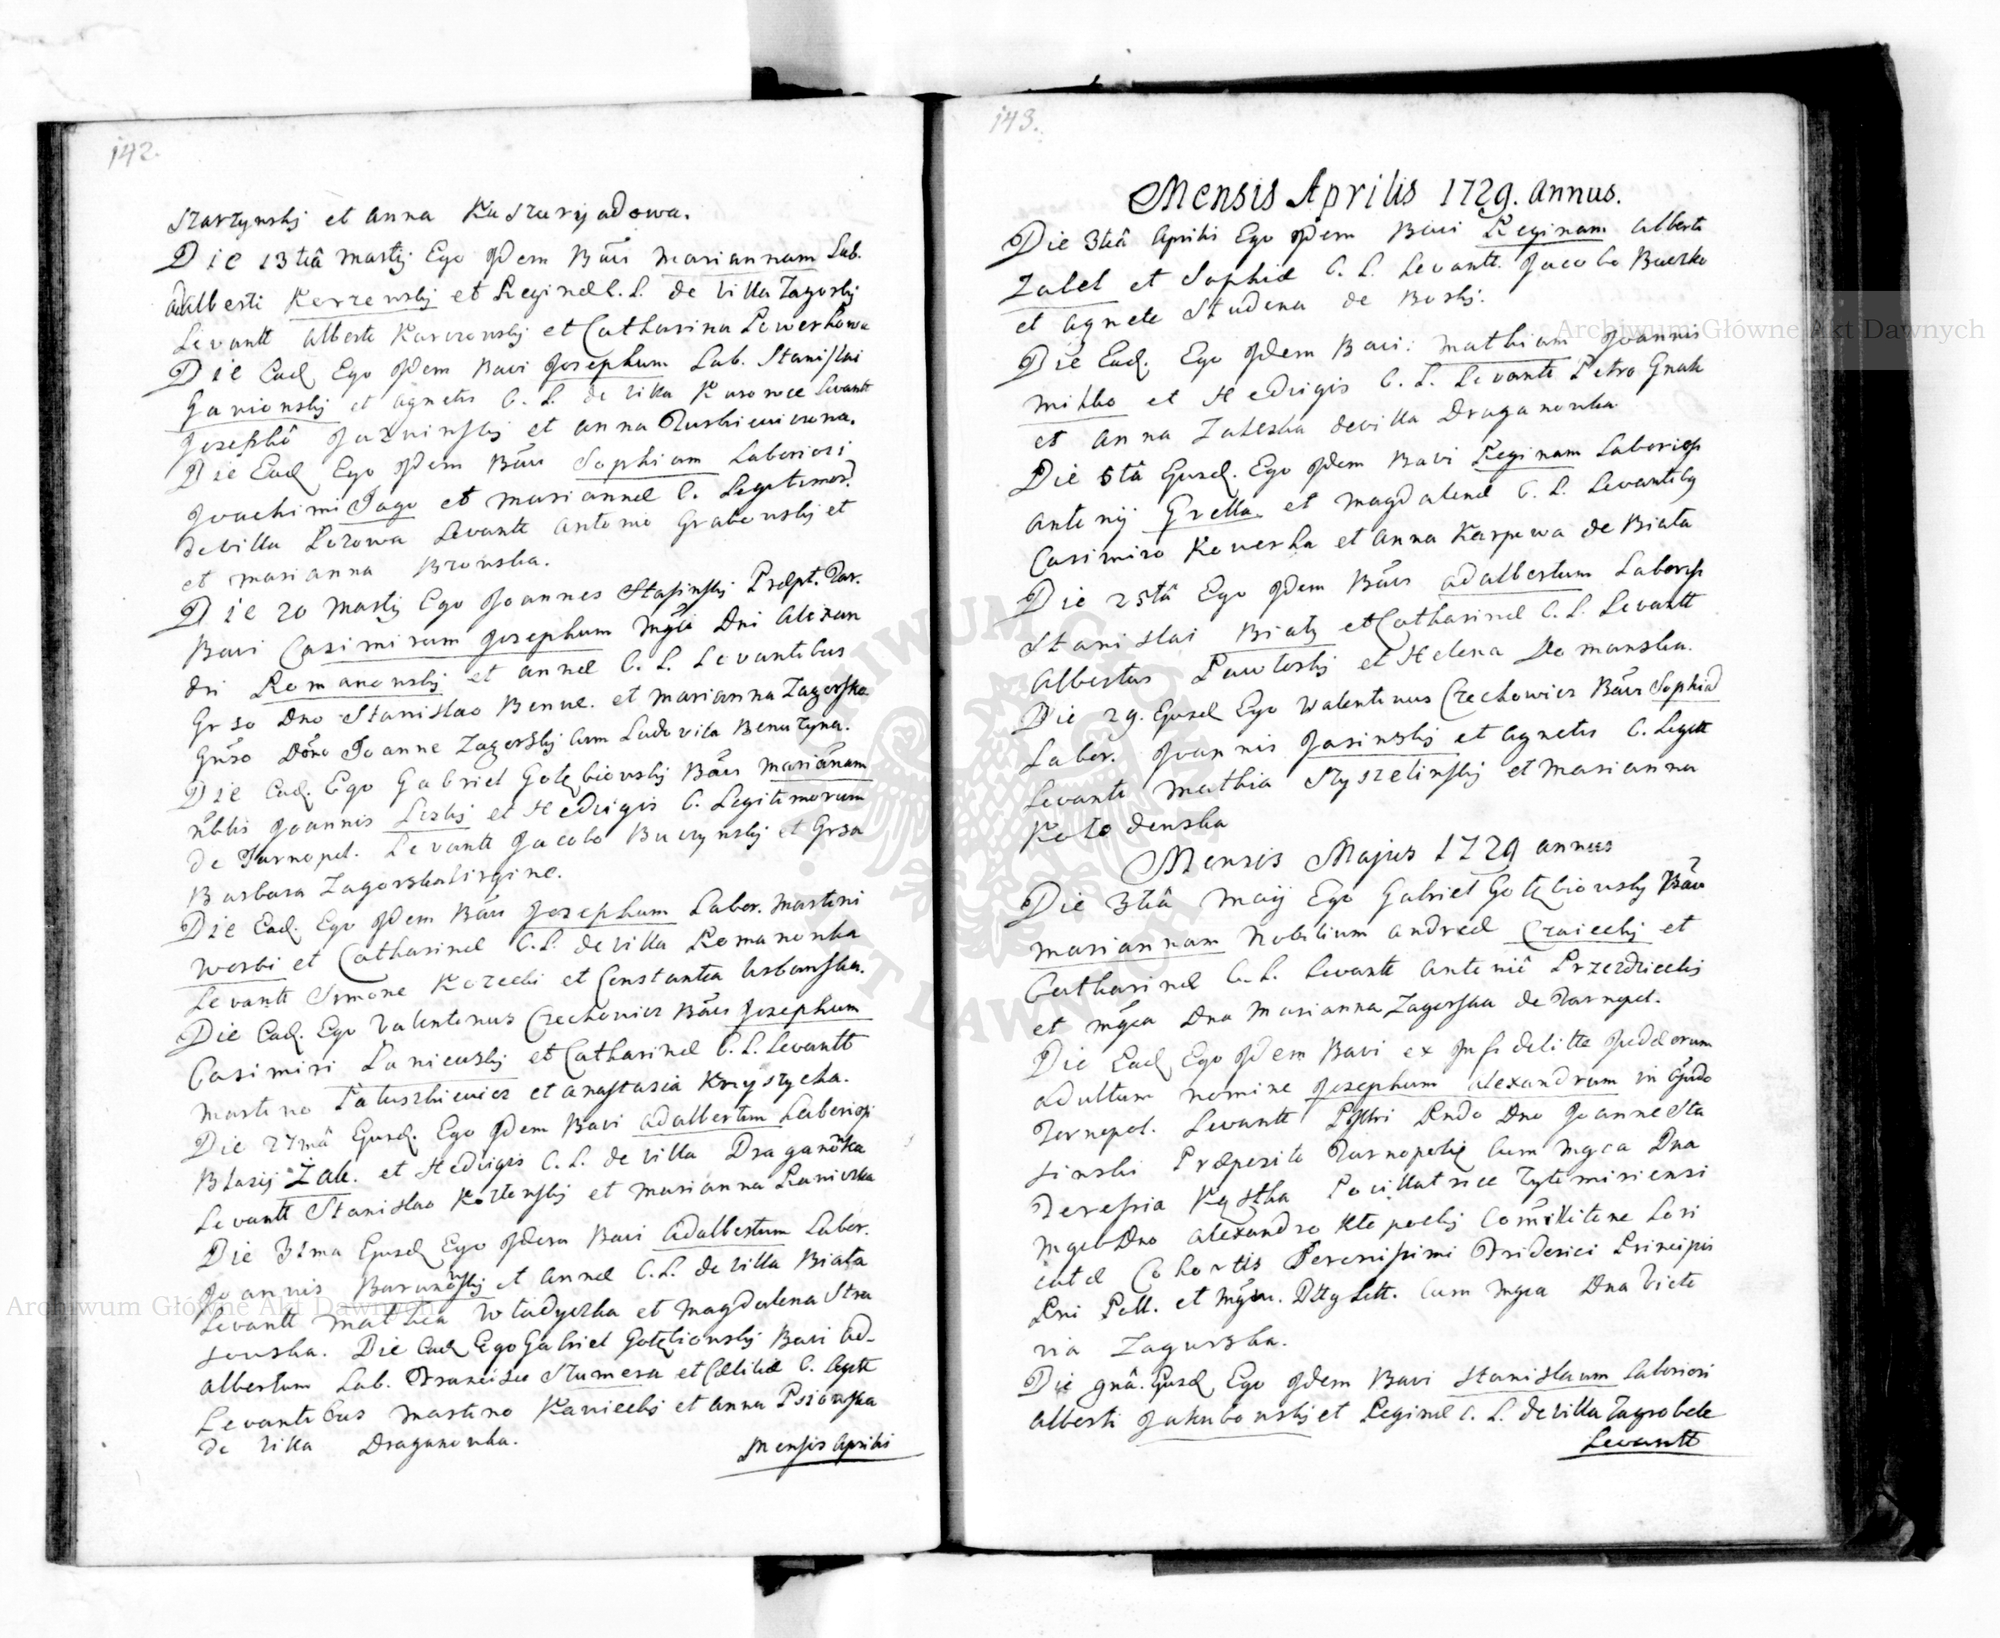 142.
Starzynskij et Anna Kaszuryjadowa.
Die 13tiâ Martij Ego Idem Bãvi Mariannam Lab.
Adalberti Kerzenskij et Reginæ C. L. de Villa Zagorskij
Levantt Alberto Karczonskij et Catharina Lewerkowa
Die Ead. Ego Idem Bavi Josephum Lab. Stanislai
Gavionskij et Agnetis C. L. de Villa Levantt
Josephô et Anna
Die Ead. Ego Idem Bãvi Sophiam Laboriosi
Joachimi Jago et Mariannæ C. Legitimor.
de Villa Lozowa Levantt Antonio Grabowskij et
et Marianna Bzowska.
Die 20 Martij Ego Joannes Stasinskij Præpt. Tar.
Bavi Casimirum Josephum Mgci Dni Alexan
dri Romanowskij et Annæ C. L. Levantibus
Grso Dno Stanislao Benue. et Marianna Zagorska
Gnso Dõno Joanne Zagorskij Cum Ludovica Benuzyna.
Die Ead. Ego Gabriel Gołębiowskij Bãvi Mariãnam
Nbilis Joannis Leskij et Hedvigis C. Legitimorum
de Tarnopol. Levantt Jacobo Buczynskij et Grsa
Barbara Zagorska Virgine.
Die Ead. Ego Idem Bãvi Josephum Labor. Martini
Worbi et Catharinæ C. L. de Villa Romanowka
Levantt Simone Kozecki et Constantia Urbanska.
Die Ead. Ego Valentinus Czechowicz Bãvi Josephum
Casimiri Laniewskij et Catharinæ C. L. Levantt
Martino Latuszkiewicz et Anastasia Krzystycha.
Die 27mâ Ejusd. Ego Idem Bavi Adalbertum Laboriosi
Blasij Żak. et Hedvigis C. L. de Villa Draganõwka
Levantt Stanislao Kozlenskij et Marianna Raniczka
Die 31ma Ejusd. Ego Idem Bavi Adalbertum Labor.
Joannis Baranowskij et Annæ C. L. de Villa Biała
Levantt Mathia Władyczka et Magdalena Stra
sowska. Die Ead. Ego Gabriel Gołębiowskij Bavi Ad-
albertum Lab. Francisco Szumera et Cæliliæ C. Legtt
Levantibus Martino Kaniecki et Anna Psionska
de Villa Draganowka.
Mensis Aprilis
143.
Mensis Aprilis 1729. Annus.
Die 3tiâ Aprilis Ego Idem Bavi Reginam Alberti
Zalel et Sophiæ C. L. Levantt. Jacobo Buczko
et Agnete Studena de Borkij.
Die Ead. Ego Idem Bavi: Mathiam Joannis
Mitko et Hedvigis C. L. Levantt Petro Gnat
et Anna Zaleska de Villa Draganowka
Die 5tâ Ejusd. Ego Idem Bavi Reginam Laboriosi
Antonij Grella et Magdalenæ C. L. Levantibq
Casimiro Kowerka et Anna Karpowa de Biała
Die 25tâ Ego Idem Bãvi Adalbertum Laboriosi
Stanislai Białij et Catharinæ C. L. Levantt
Albertus Pawłoskij et Helena Domanska.
Die 29. Ejusd. Ego Walentinus Czechowicz Bãvi Sophiã
Labor. Joannis Jasinskij et Agnetis C. Legitt
Levantt Mathia Szyszelinskij et Marianna
Kołodenska
Mensis Majus 1729 annus
Die 3tiâ Maij Ego Gabriel Gołębiowskij Bãvi
Mariannam Nobilium Andreæ Czaieckij et
Catharinæ C. L. Levantt Antoniô Przezdzieckij
et Mgca Dna Marianna Zagorska de Tarnopol.
Die Ead. Ego Idem Bavi ex Infidelitte Judæorum
adultum nomine Josephum Alexandrum in Oppido
Tarnopol. Levantt Pssttri Rndo Dno Joanne Sta
sinski Præposito Tarnopoliẽ Cum Mgca Dna
Teresia Kąstka Pocillatrice Zytomiriensi
Mgco Dno Alexandro Kłopockij Comilitone Lori
catæ Cohortis Serenissimi Friderici Principis
Rni Poll. et Mgn. D Litt. Cum Mgca Dna Victo
ria Zagurska.
Die 9nâ. Ejusd. Ego Idem Bavi Stanislaum Laboriosi
Alberti Jakubowskij et Reginæ C. L. de Villa Zagrobele
Levantt
Archiwum Główne Akt Dawnych
Archiwum Główne Akt Dawnych
ARCHIWUM GŁÓWNE AKT DAWNYCH